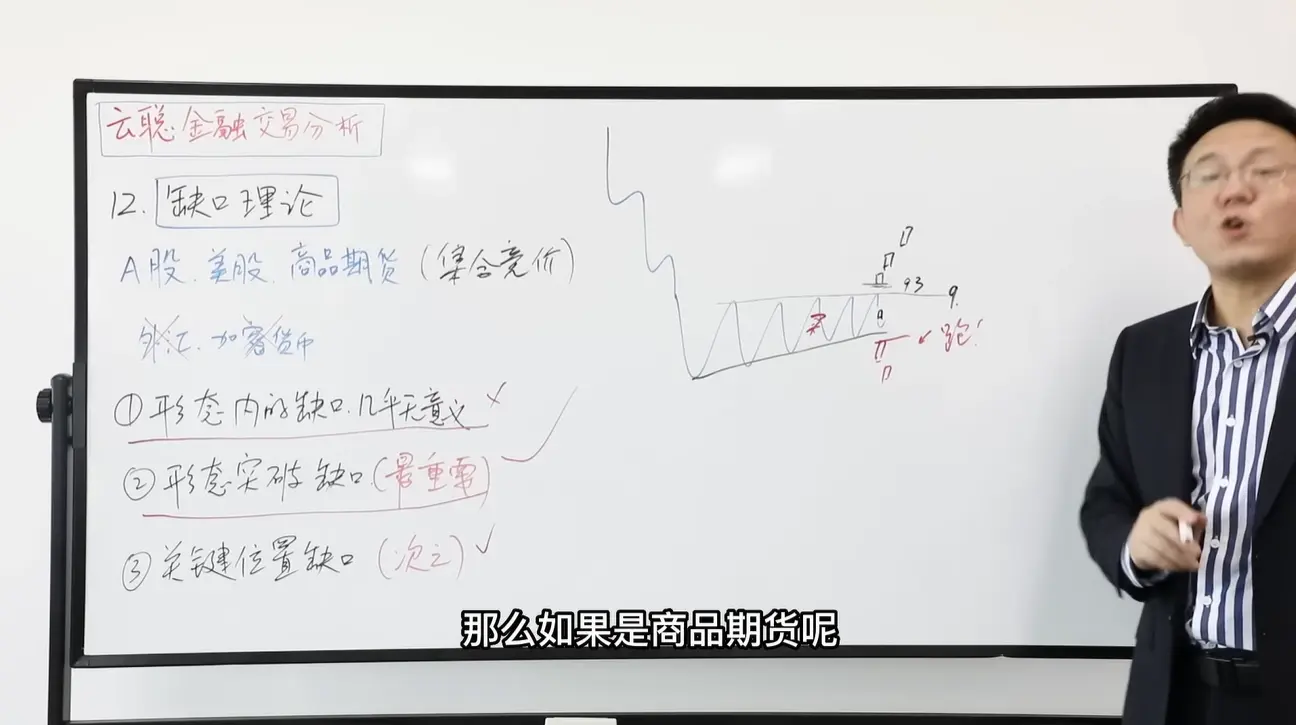 云聪·金融交易分析
12. 缺口理论
A股.美股.商品期货(集合竞价)
外汇.加密货币
①形态内的缺口.几乎无意义 ×
②形态突破缺口(最重要) ✓
③关键位置缺口(次之) ✓
93
9.
跑!
那么如果是商品期货呢